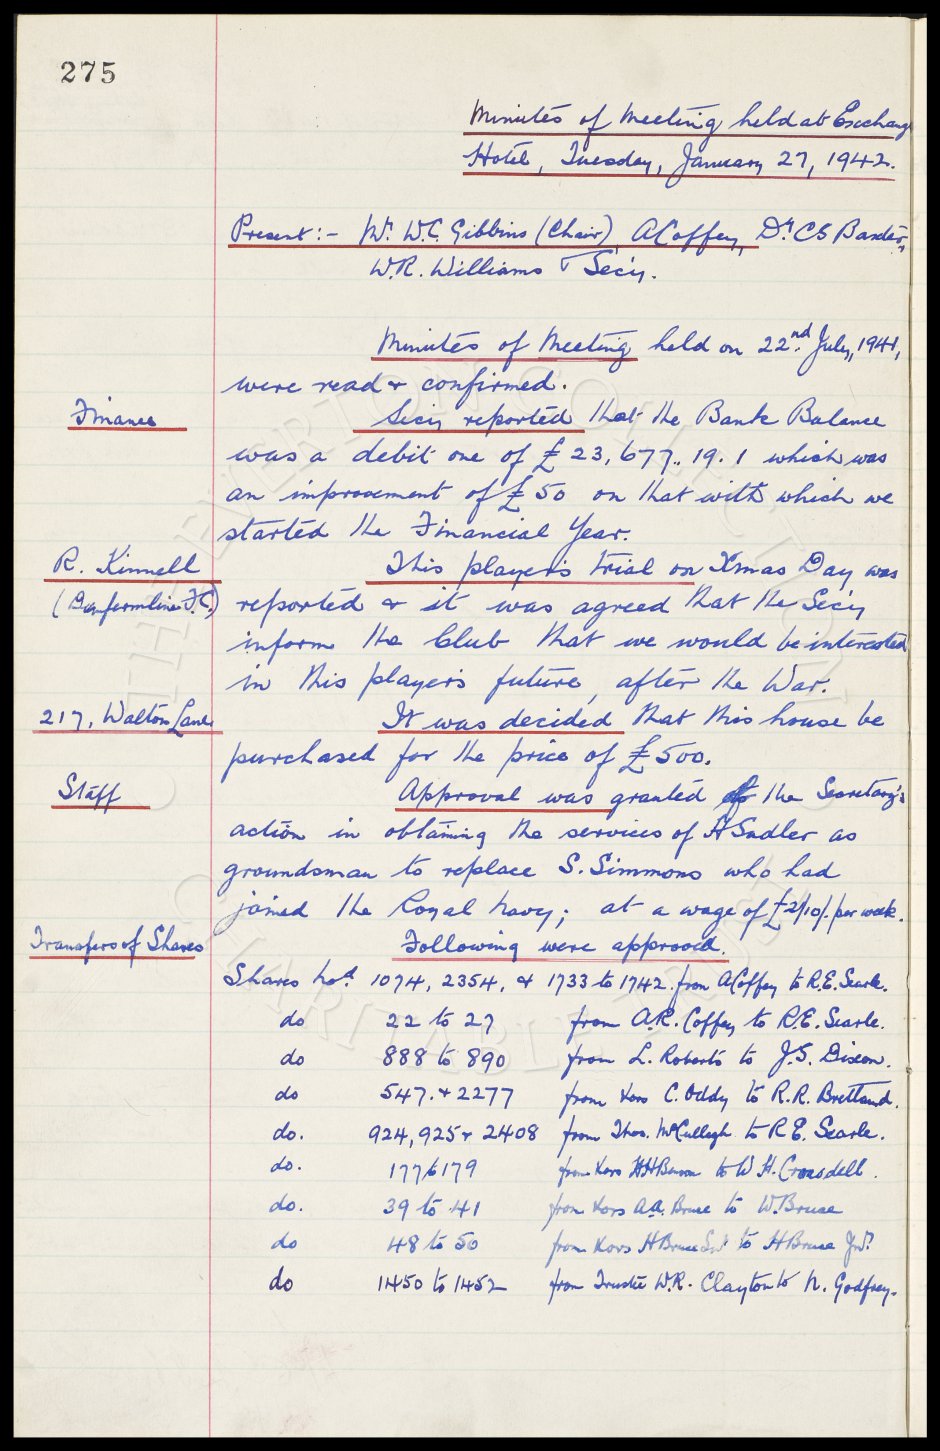 275
Minutes of Meeting held at Exchange
Hotel, Tuesday, January 27, 1942.
Present:- Mr. W.C. Gibbins (Chair), A Coffey, Dr. CS Baxter,
W.R. Williams & Secy.
Minutes of Meeting held on 22nd. July, 1941,
were read & confirmed.
Finance
Secy reported that the Bank Balance
was a debit one of £23,677.. 19. 1 which was
an improvement of £50 on that with which we
started the Financial Year.
R. Kinnell
(Dunfermline F.C.)
This player's trial on Xmas Day was
reported & it was agreed that the Secy
inform the Club that we would be interested
in this player's future, after the War.
217, Walton Lane
It was decided that this house be
purchased for the price of £500.
Staff
Approval was granted the Secretary's
action in obtaining the services of H Sadler as
groundsman to replace S. Simmons who had
joined the Royal Navy; at a wage of £2/10/- per week.
Transfers of Shares
Following were approved.
Shares No.s 1074, 2354, & 1733 to 1742 from A Coffey to R.E. Searle.
do 22 to 27 from A.R. Coffey to R.E. Searle.
do 888 to 890 from L. Roberts to J.S. Dixon.
do 547. & 2277 from Xors C. Oddy to R.R. Brettand.
do. 924, 925 & 2408 from Thos. McCullagh to R E. Searle.
do. 177 to 179 from Xors HH Benson to W H. Croasdell.
do. 39 to 41 from Xors A.A. Bruce to W. Bruce
do 48 to 50 from Xors H Bruce Snr to H Bruce Jnr.
do 1450 to 1452 from Trustee W.R. Clayton to N. Godfrey.